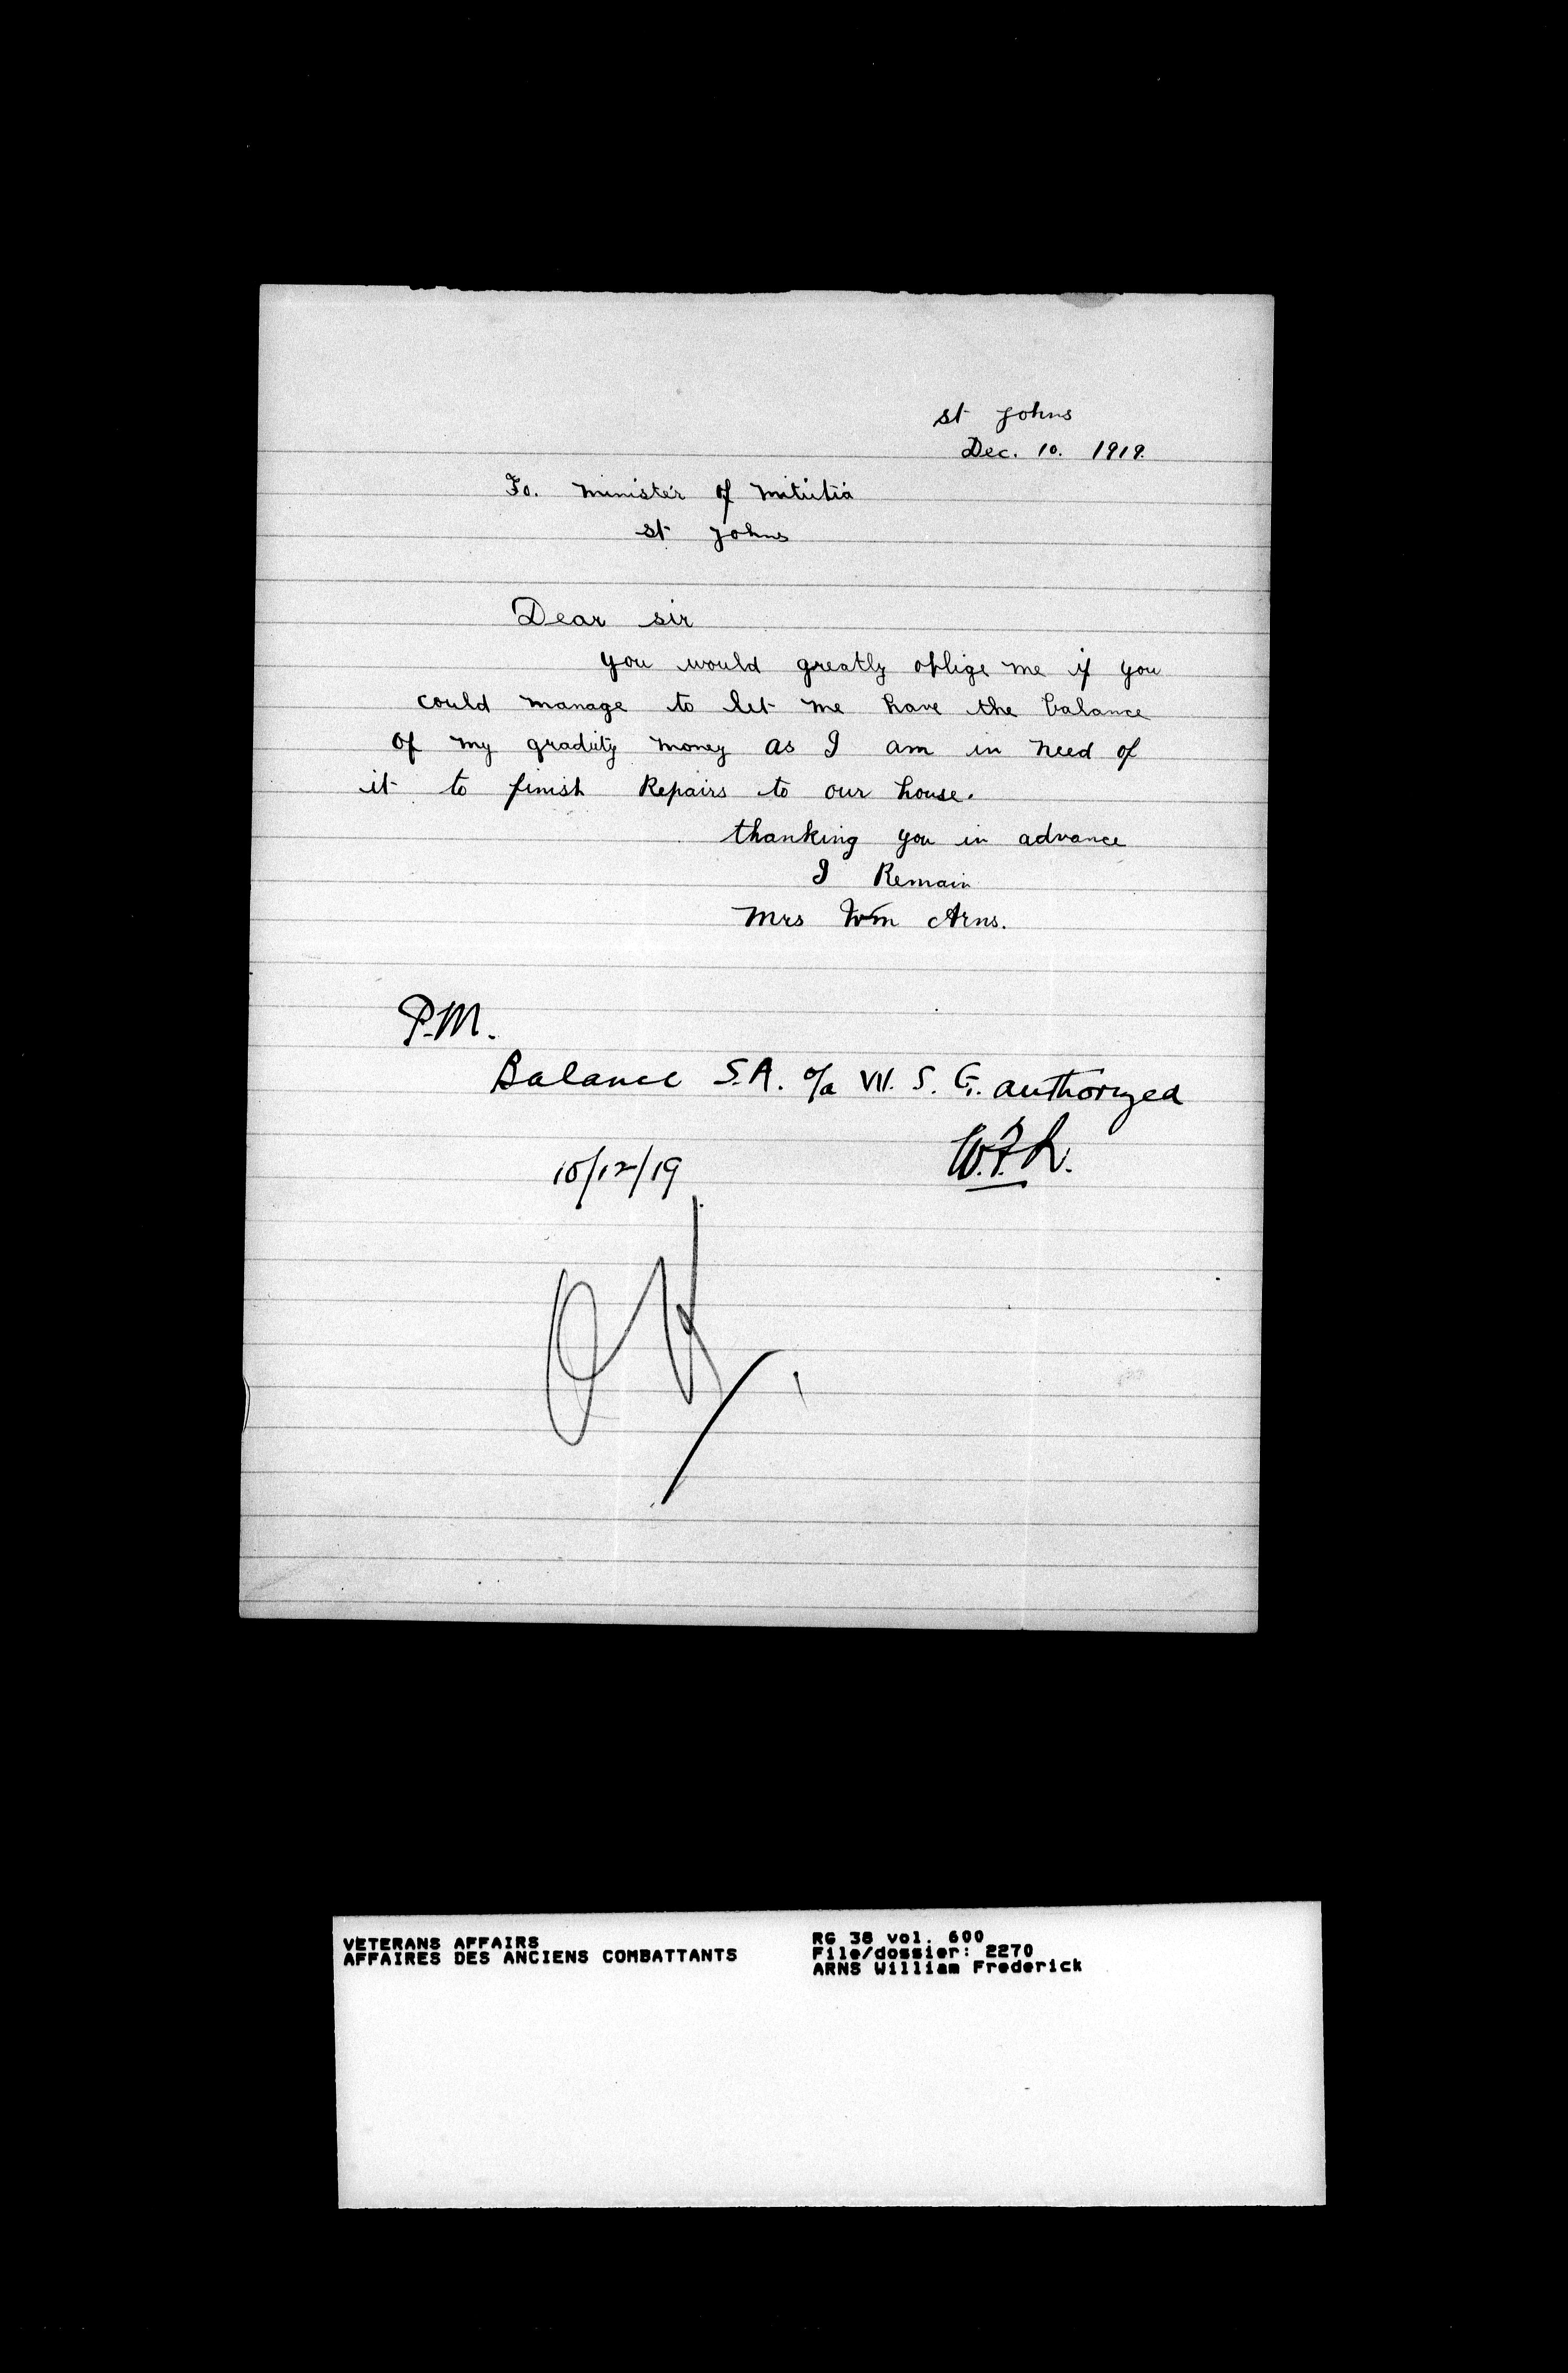 st Johns
Dec. 10. 1919.
To. minister of mitutia
st Johns
Dear sir
you would greatly oblige me if you
could manage to let me have the balance
of my graduty money as I am in need of
it to finish Repairs to our house.
thanking you in advance
I Remain
Mrs Wm Arns.
P.M.
Balance S.A. o/a W. S. G. authorized
10/12/19
W.F.R.
OK
VETERANS AFFAIRS
AFFAIRES DES ANCIENS COMBATTANTS
RG 38 vol. 600
File/dossier: 2270
ARNS William Frederick